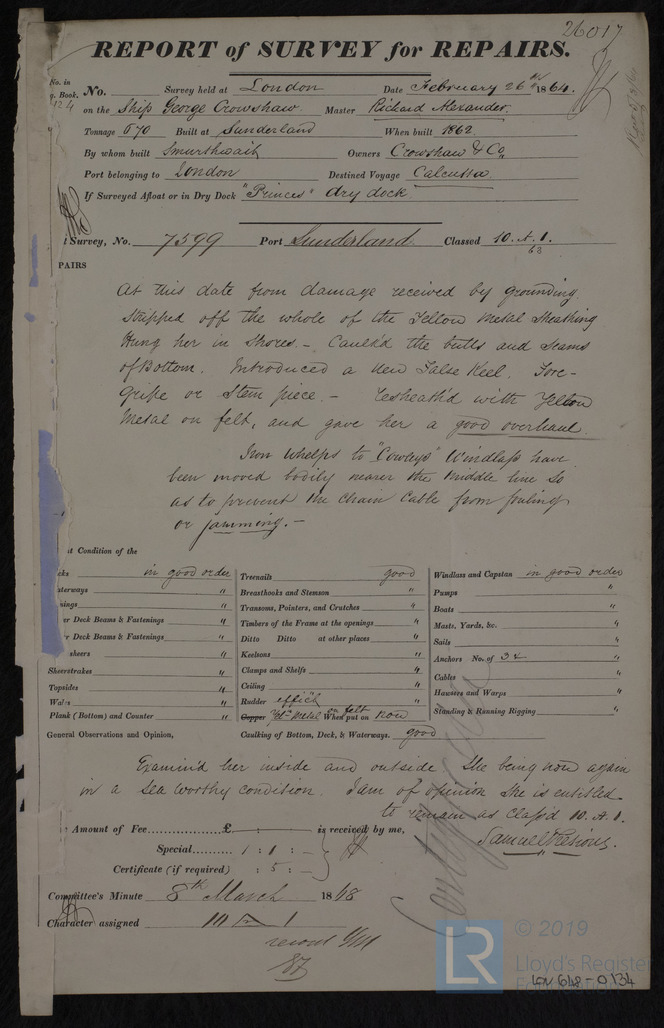 26017
REPORT of SURVEY for REPAIRS.
No. in
g. Book. No. Survey held at London Date February 26th 1864.
124 on the Ship George Crowshaw. Master Richard Alexander.
Tonnage 570 Built at Sunderland When built 1862.
By whom built Smurthwait Owners Crowshaw & Co.
Port belonging to London Destined Voyage Calcutta.
If Surveyed Afloat or in Dry Dock "Princes" dry dock.
t Survey, No. 7599 Port Sunderland Classed 10. A. 1.
63
PAIRS
At this date from damage received by grounding.
Stripped off the whole of the Yellow Metal Sheathing
Hung her in Shores. – Caulk'd the butts and Seams
of Bottom. Introduced a new False Keel. Fore-
Gripe or Stem piece. – resheath'd with Yellow
Metal on felt, and gave her a good overhaul.
Iron whelps to "Cowleys" Windlass have
been moved bodily nearer the middle line so
as to prevent the chain Cable from fouling
or jamming. –
t Condition of the
cks in good order Treenails good Windlass and Capstan in good order
aterways " Breasthooks and Stemson " Pumps "
mings " Transoms, Pointers, and Crutches " Boats "
er Deck Beams & Fastenings " Timbers of the Frame at the openings " Masts, Yards, &c. "
er Deck Beams & Fastenings " Ditto Ditto at other places " Sails "
sheers " Keelsons " Anchors No. of 3 "
Sheerstrakes " Clamps and Shelfs " Cables "
Topsides " Ceiling " Hawsers and Warps "
Wales " Rudder " Standing & Running Rigging "
Plank (Bottom) and Counter " Copper Yel. Metal on felt When put on Now
General Observations and Opinion, Caulking of Bottom, Deck, & Waterways. good
Examin'd her inside and outside. She being now again
in a Sea worthy condition. I am of opinion She is entitled
to remain as Class'd 10. A. 1.
Amount of Fee £ : : is received by me,
Special 1 : 1 :
Certificate (if required) : 5 :
Committee's Minute 8th March 18
Character assigned A 1
© 2019
LR
Lloyd's Register
Foundation
LON 648-0134